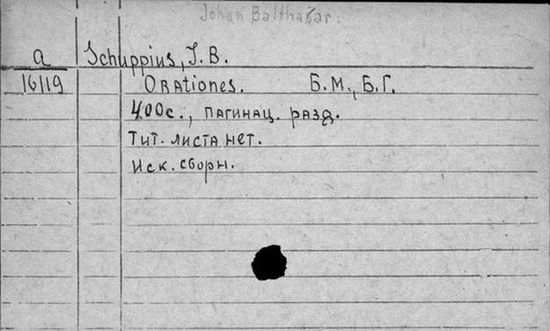 Johan Balthasar.
a Schuppius, J. B.
16119 Orationes. Б.М., Б.Г.
400с., пагинац. разд.
Тит. листа нет.
Иск. сборн.